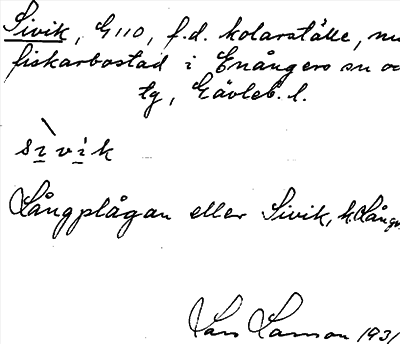 Sivik, G 110, f.d. kolarställe, nu
fiskarbostad i Enångers sn o
tg, Gävleb. l.
sìvik
Långplågan eller Sivik, k. Lång
Lars Larsson 1931